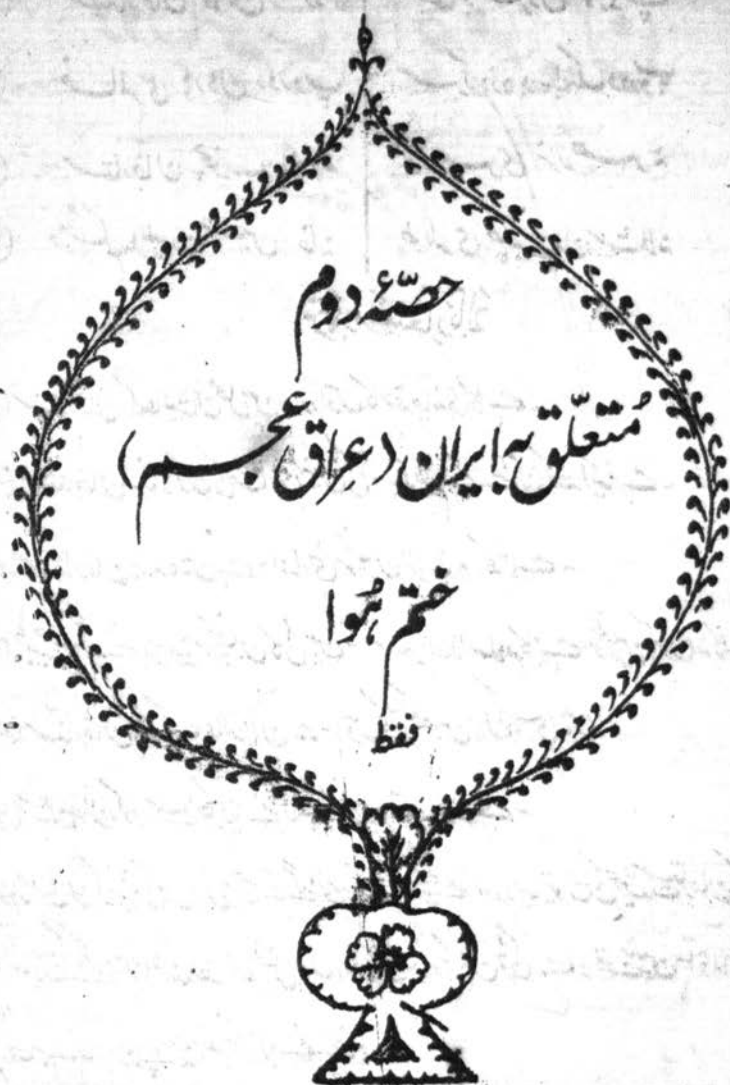 حصّۂ دوم
مُتعلّق بہ ایران (عراق عجم)
ختم ہُوا
فقط